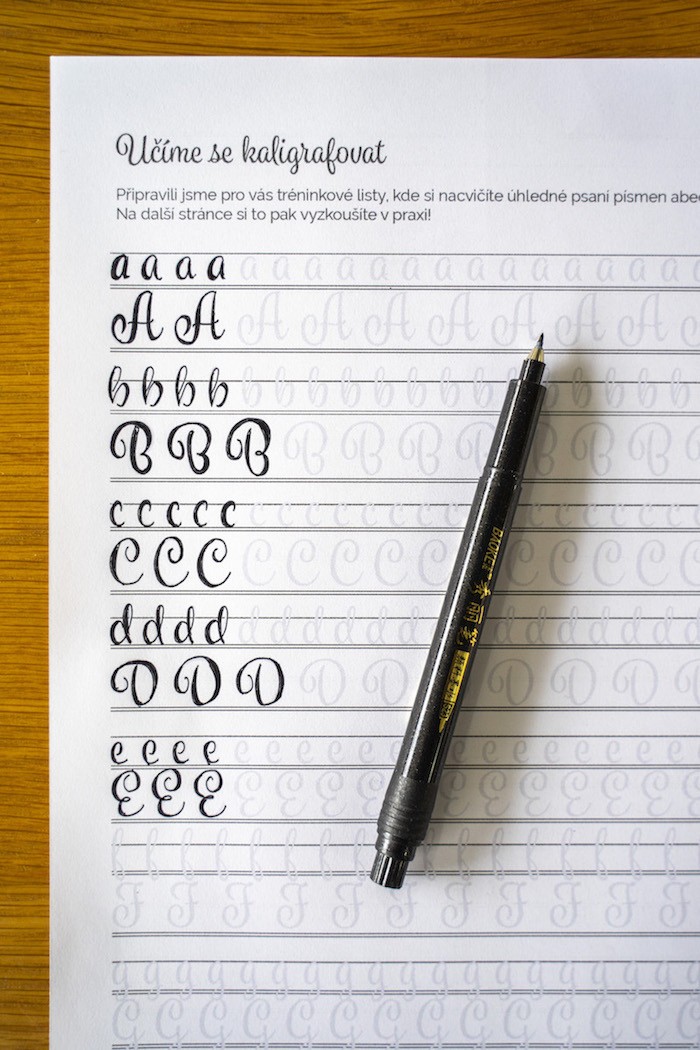 Učíme se kaligrafovat
Připravili jsme pro vás tréninkové listy, kde si nacvičíte úhledné psaní písmen
Na další stránce si to pak vyzkoušíte v praxi!
a a a a a a a a a a a a a a a a a a
A A A A A A A A A
b b b b b b b b b b b b b b b b b
B B B B B B B B B
c c c c c c c c c c c c c c c c c c c
C C C C C C C C C C C C C
d d d d d d d d d d d d d d d d d
D D D D D D D D
e e e e e e e e e e e e e e e e e e
E E E E E E E E E E E E E
f f f f f f f f f f f f f f f f f f
F F F F F F F F F F
g g g g g g g g g g g g g g g g g g
G G G G G G G G G G G G G
BAOKE